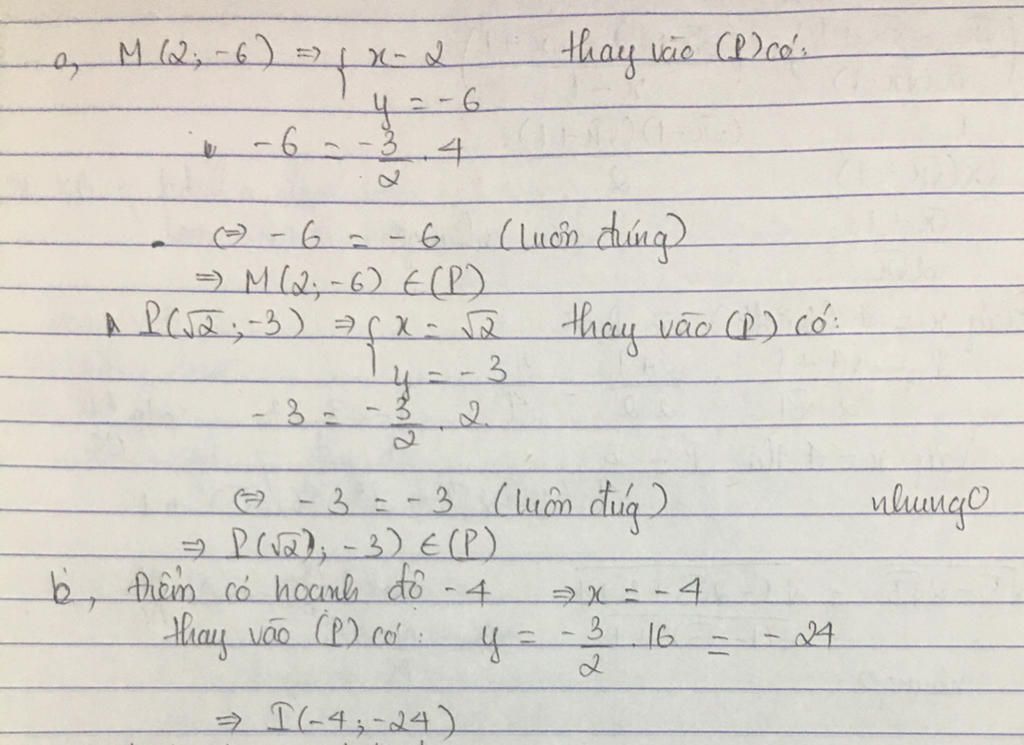 a, M(2; -6) ⇒ { x = 2 thay vào (P) có:
y = -6
-6 = -3/2 . 4
⇔ -6 = -6 (luôn đúng)
⇒ M(2; -6) ∈ (P)
P(√2; -3) ⇒ { x = √2 thay vào (P) có:
y = -3
-3 = -3/2 . 2
⇔ -3 = -3 (luôn đúg) nhung0
⇒ P(√2); -3) ∈ (P)
b, điểm có hoành độ -4 ⇒ x = -4
thay vào (P) có: y = -3/2 . 16 = -24
⇒ I(-4; -24)